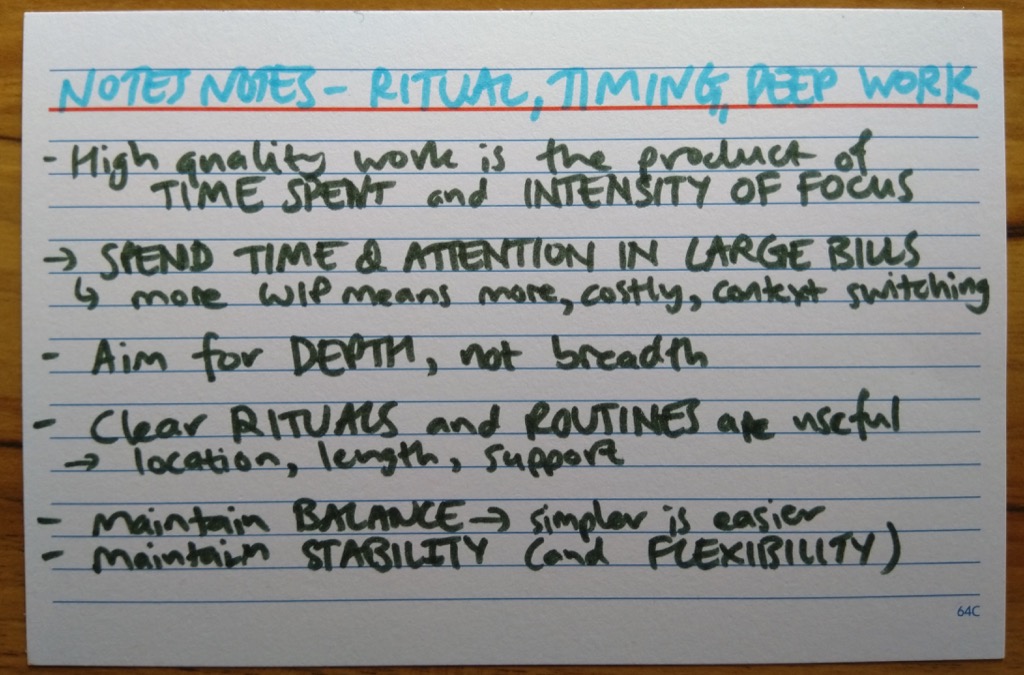 NOTES NOTES - RITUAL, TIMING, DEEP WORK
- High quality work is the product of
TIME SPENT and INTENSITY OF FOCUS
→ SPEND TIME & ATTENTION IN LARGE BILLS
↳ more WIP means more, costly, context switching
- Aim for DEPTH, not breadth
- Clear RITUALS and ROUTINES are useful
→ location, length, support
- Maintain BALANCE → simpler is easier
- Maintain STABILITY (and FLEXIBILITY)
64C